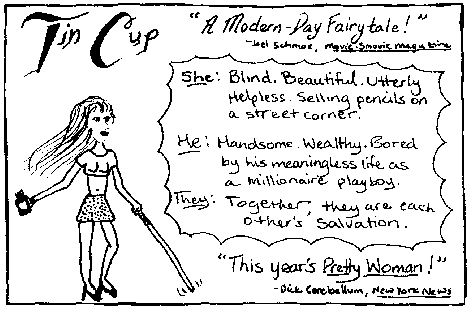 Tin Cup
"A Modern-Day Fairytale!"
-Joel Schmoe, Movie-Shmovie Magazine
She: Blind. Beautiful. Utterly
Helpless. Selling pencils on
a street corner.
He: Handsome. Wealthy. Bored
by his meaningless life as
a millionaire playboy.
They: Together, they are each
other's Salvation.
"This year's Pretty Woman!"
-Dick Cerebellum, New York News